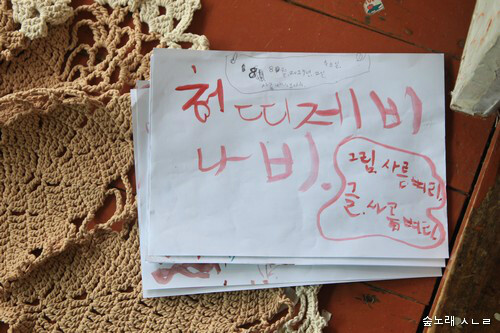 청띠제비
나비.
그림.사름
벼리.
글.사름
벼리
숲노래 ㅅㄴㄹ